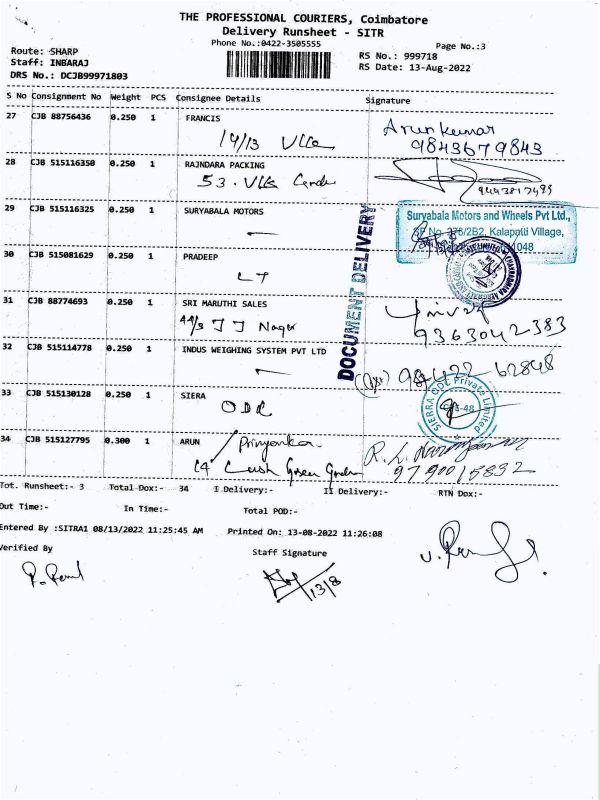 THE PROFESSIONAL COURIERS, Coimbatore
Delivery Runsheet - SITR
Phone No.:0422-3505555
Page No.:3
Route: SHARP
Staff: INBARAJ
DRS No.: DCJB99971803
RS No.: 999718
RS Date: 13-Aug-2022
S No Consignment No Weight PCS Consignee Details Signature
27 CJB 88756436 0.250 1 FRANCIS
14/13
Arunkumar
9843679843
28 CJB 515116350 0.250 1 RAJNDARA PACKING
53.
29 CJB 515116325 0.250 1 SURYABALA MOTORS
Suryabala Motors and Wheels Pvt Ltd.,
SF No. 376/2B2, Kalapatti Village,
DOCUMENT DELIVERY
30 CJB 515081629 0.250 1 PRADEEP
LT
31 CJB 88774693 0.250 1 SRI MARUTHI SALES
44/3 JJ Nagar
9363042383
32 CJB 515114778 0.250 1 INDUS WEIGHING SYSTEM PVT LTD
98422 62848
33 CJB 515130128 0.250 1 SIERA
ODC
SIERRA ODC Private Limited
34 CJB 515127795 0.300 1 ARUN
Priyanka
9790015832
Tot. Runsheet:- 3 Total Dox:- 34 I Delivery:- II Delivery:- RTN Dox:-
Out Time:- In Time:- Total POD:-
Entered By :SITRA1 08/13/2022 11:25:45 AM Printed On: 13-08-2022 11:26:08
Verified By Staff Signature
13/8